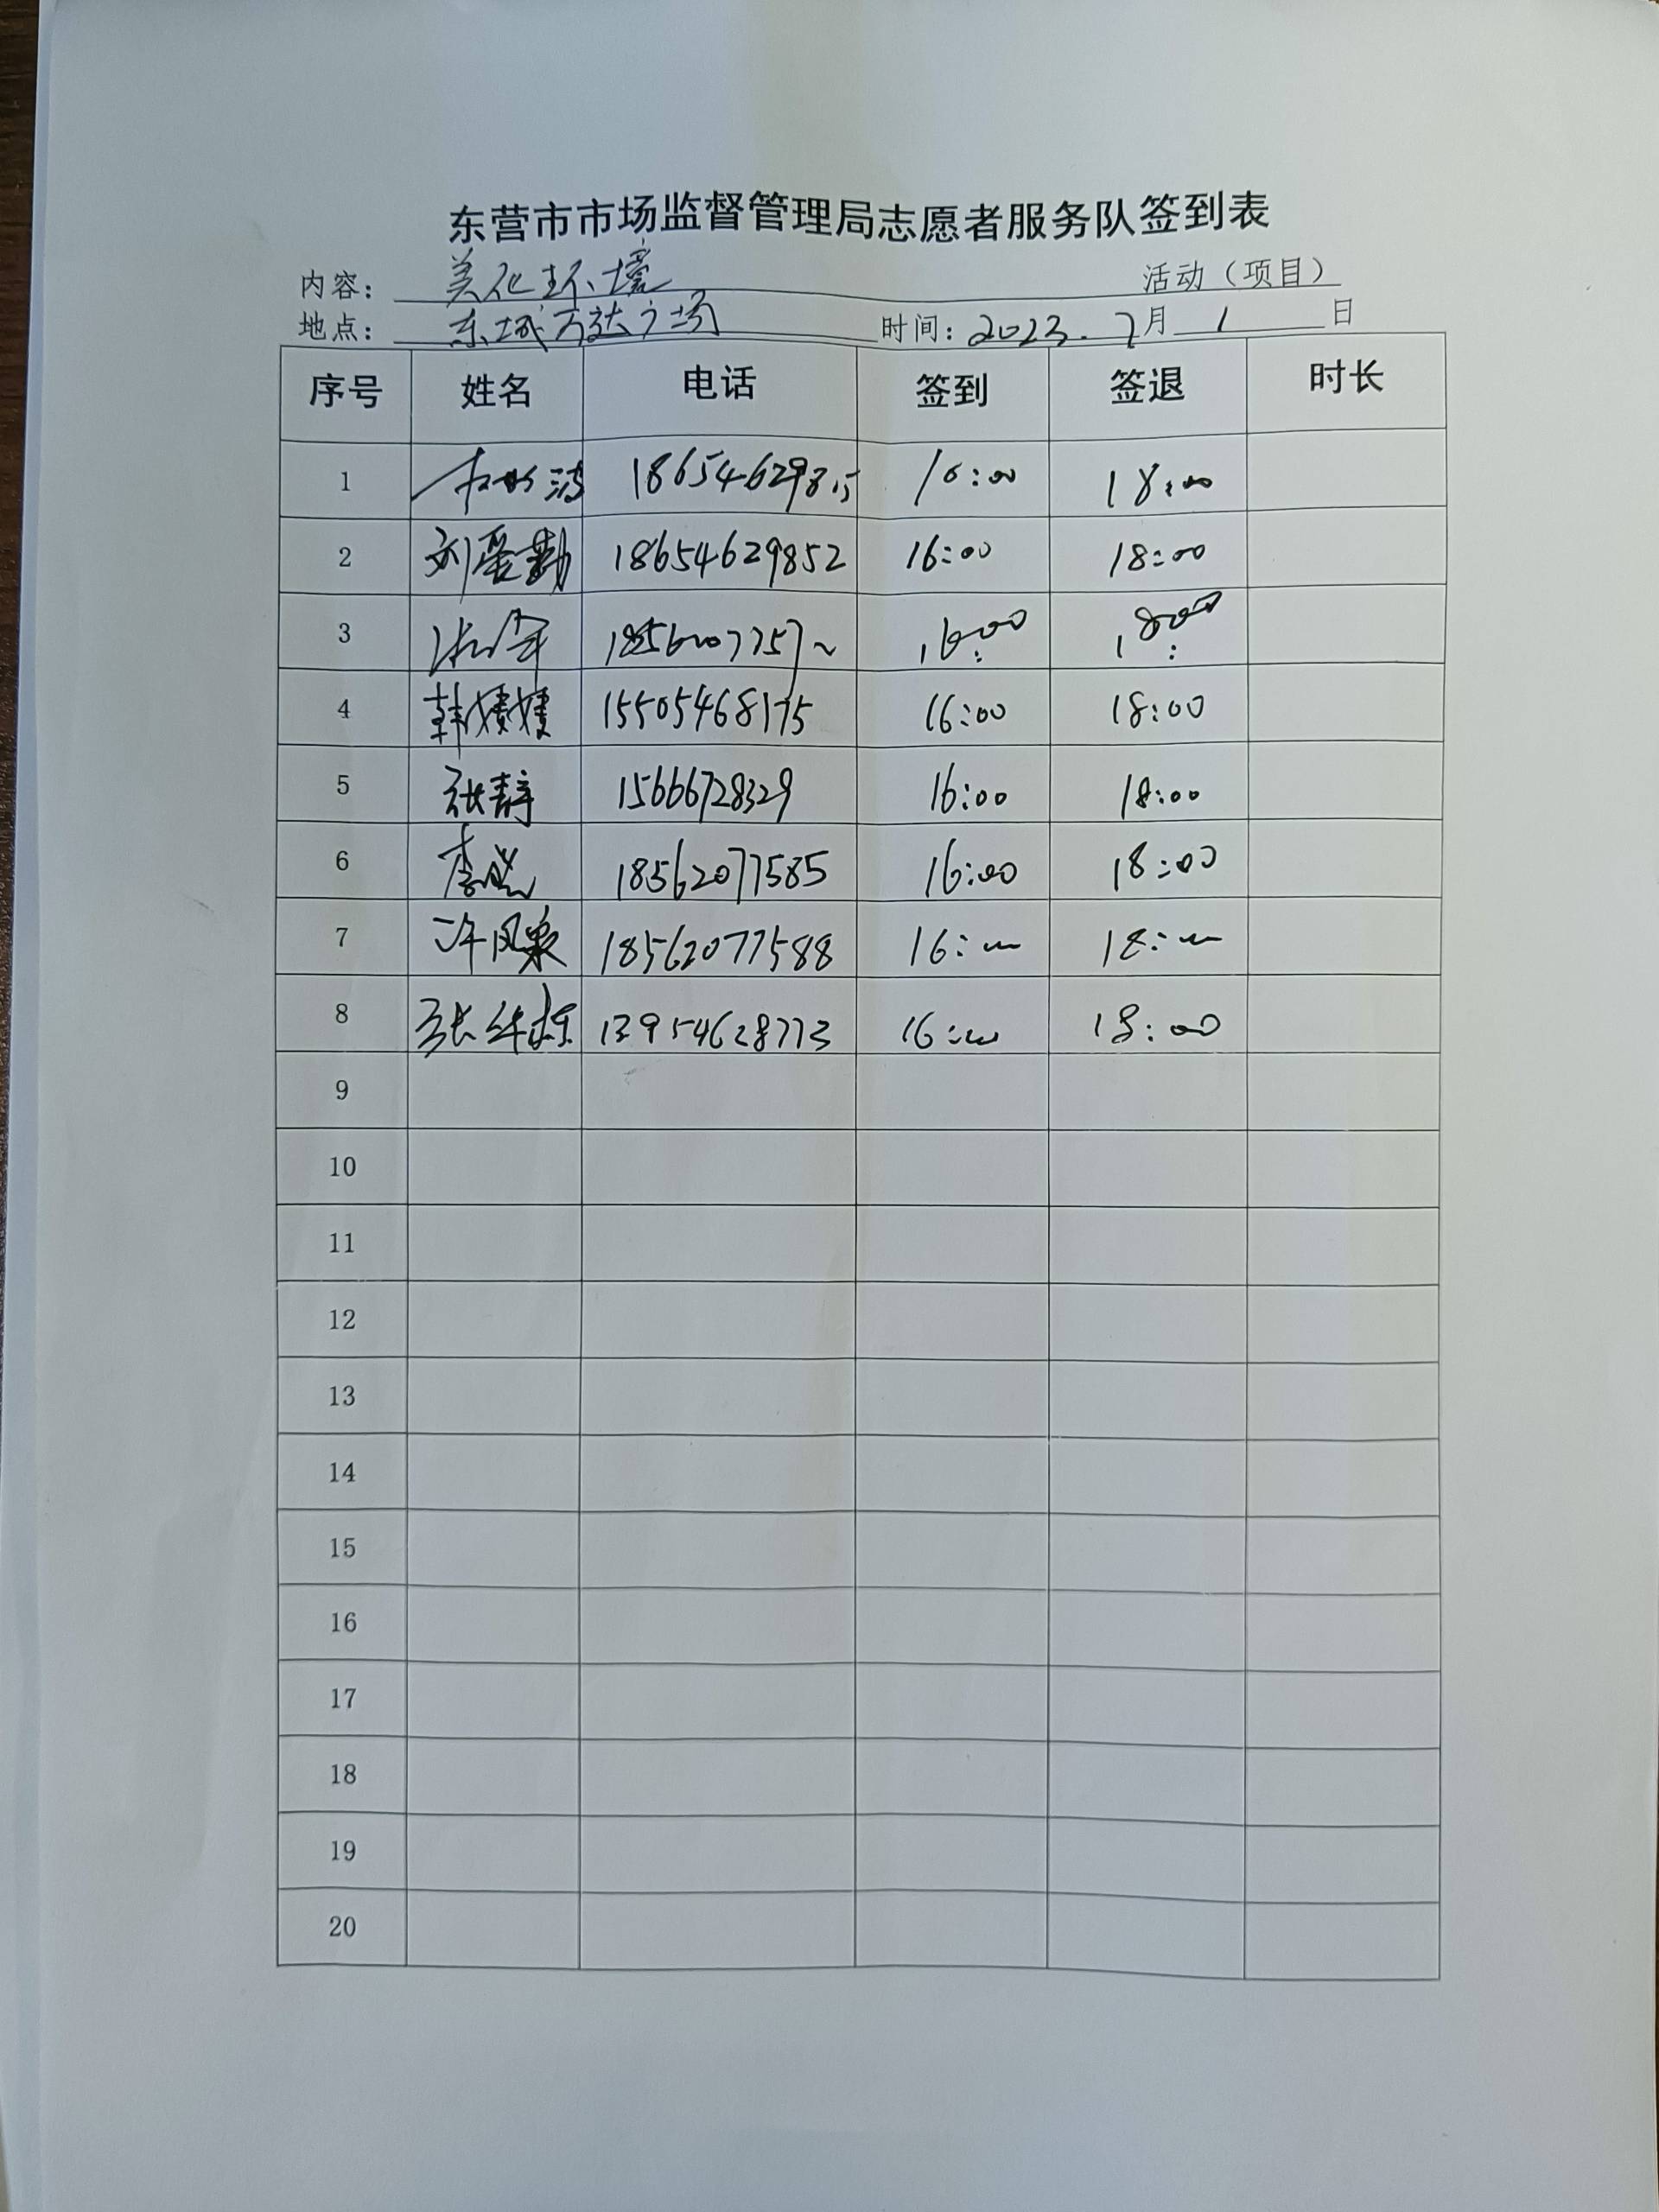 东营市市场监督管理局志愿者服务队签到表
内容： 美化环境 活动（项目）
地点： 东城万达广场 时间：2023.7月 1 日
序号 姓名 电话 签到 签退 时长
1 18654629815 16:00 18:00
2 刘爱勤 18654629852 16:00 18:00
3 16:00 18:00
4 韩婧婧 15505468175 16:00 18:00
5 张静 15666728329 16:00 18:00
6 李晓 18562077585 16:00 18:00
7 许凤泉 18562077588 16:00 18:00
8 张华栋 13954628773 16:00 18:00
9
10
11
12
13
14
15
16
17
18
19
20